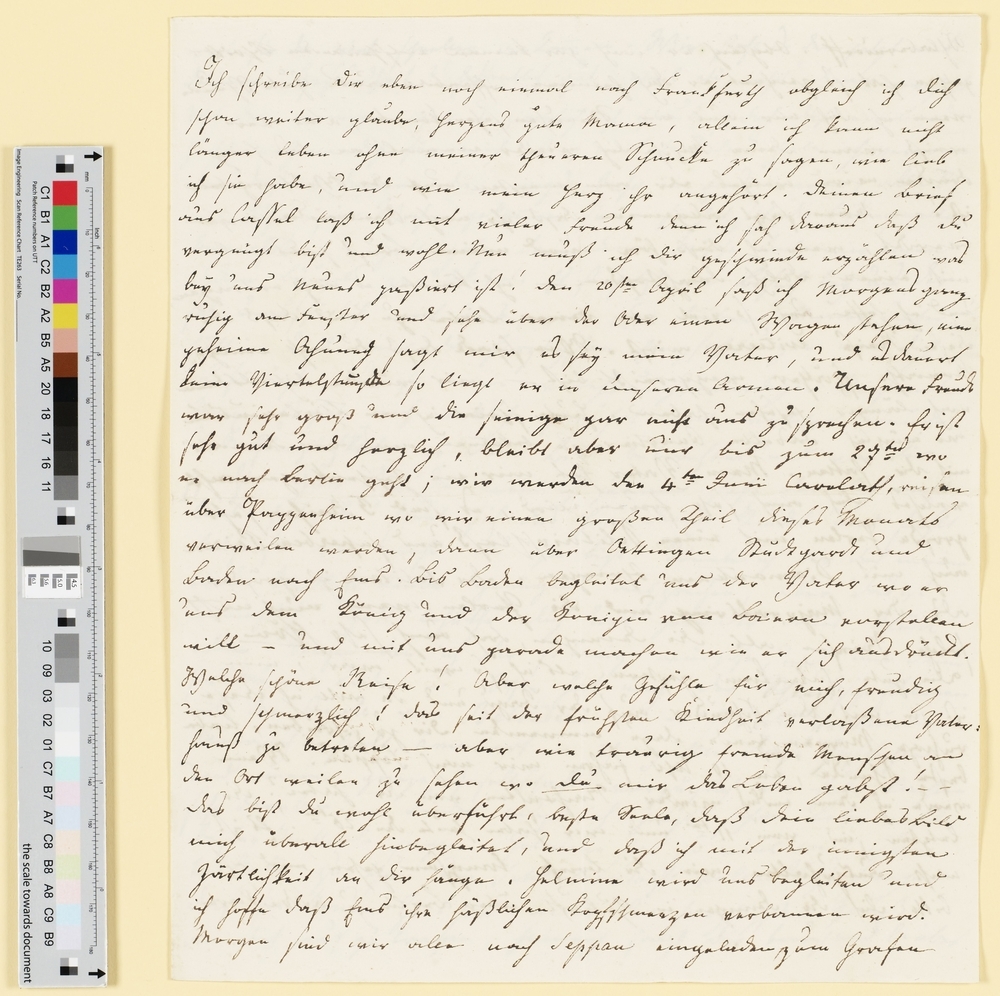 Ich schreibe Dir eben noch einmal nach Frankfurth obgleich ich dich
schon weiter glaube, herzens gute Mama, allein ich kann nicht
länger leben ohne meiner theueren Schnucke zu sagen, wie lieb
ich sie habe, und wie mein Herz ihr angehört. Deinen Brief
aus Cassel laß ich mit vieler Freude denn ich sah daraus daß du
vergnügt bist und wohl Nun muß ich dir geschwinde erzählen was
bey uns Neues paßiert ist! den 20sten April saß ich Morgens ganz
ruhig am Fenster und sehe über der Oder einen Wagen stehen, eine
geheime Ahnung sagt mir es sey mein Vater, und es dauert
keine Viertelstunde so liegt er in unseren Armen. Unsere Freude
war sehr groß und die seinige gar nicht aus zu sprechen. Er ist
sehr gut und herzlich, bleibt aber nur bis zum 27ten wo
er nach Berlin geht; wir werden den 4ten Juni Carolath, reisen
über Pappenheim wo wir einen großen Theil dieses Monats
verweilen werden, dann über Oettingen Studtgardt und
Baden nach Ems. Bis Baden begleitet uns der Vater wo er
uns dem König und der Königin von Baiern vorstellen
will – und mit uns parade machen wie er sich ausdrückt.
Welche schöne Reise! Aber welche Gefühle für mich, freudig
und schmerzlich! das seit der frühsten Kindheit verlaßene Vater:
hauß zu betreten — aber wie traurig fremde Menschen an
den Ort weilen zu sehen wo Du mir das Leben gabst! – –
Das bist du wohl überführt, beste Seele, daß dein liebes Bild
mich überall hinbegleitet, und daß ich mit der innigsten
Zärtlichkeit an dir hänge. Helmine wird uns begleiten und
ich hoffe daß Ems ihre häßlichen Kopfschmerzen verbannen wird.
Morgen sind wir alle nach Seppau eingeladen, zum Grafen
C1 B1 A1 C2 B2 A2 B5 A5 20 18 17 16 11
10 09 03 02 01 C7 B7 A7 C8 B8 A8 C9 B9
the scale towards document